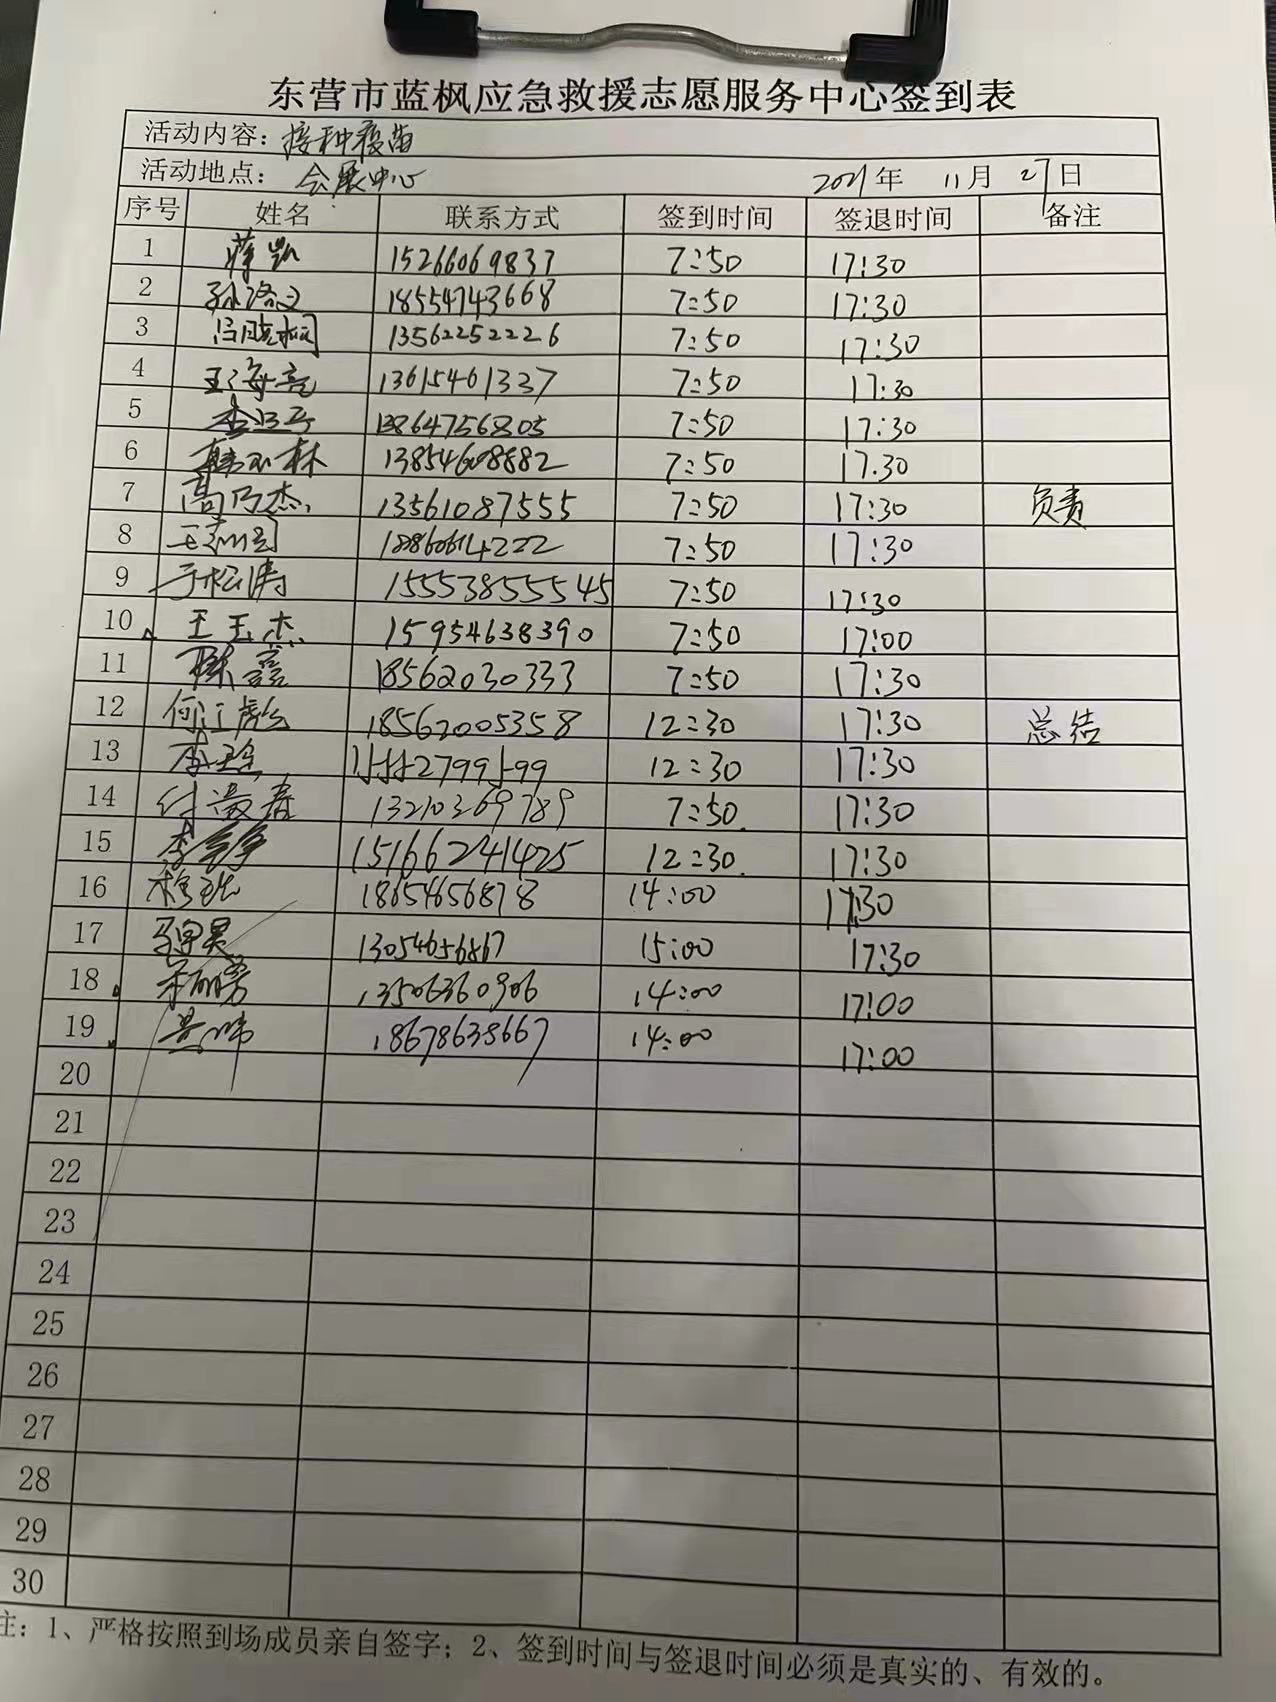 东营市蓝枫应急救援志愿服务中心签到表
活动内容：接种疫苗
活动地点：会展中心 2021年 11月 27日
序号 姓名 联系方式 签到时间 签退时间 备注
1 蒋凯 15266069837 7:50 17:30
2 18554743668 7:50 17:30
3 13562252226 7:50 17:30
4 王海亮 13615461337 7:50 17:30
5 13864756805 7:50 17:30
6 韩玉林 13854608882 7:50 17.30
7 高乃杰 13561087555 7:50 17:30 负责
8 7:50 17:30
9 于松涛 15553855545 7:50 17:30
10 王玉杰 15954638390 7:50 17:00
11 陈鑫 18562030333 7:50 17:30
12 18562005358 12:30 17:30 总结
13 12:30 17:30
14 13210369789 7:50 17:30
15 15166241425 12:30 17:30
16 18654656878 14:00 17:30
17 13054656867 15:00 17:30
18 13506360906 14:00 17:00
19 18678638667 14:00 17:00
20
21
22
23
24
25
26
27
28
29
30
注：1、严格按照到场成员亲自签字；2、签到时间与签退时间必须是真实的、有效的。